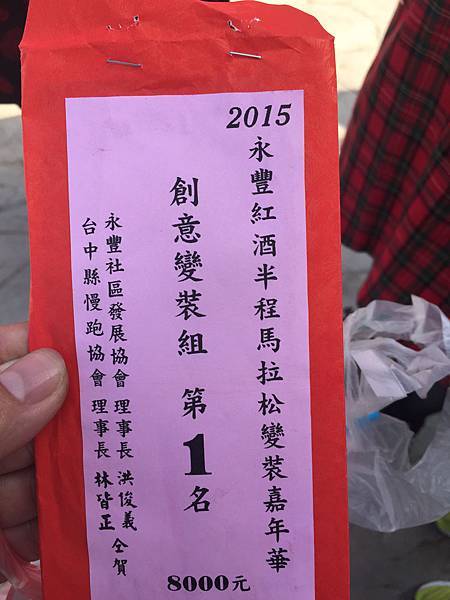 2015
永豐紅酒半程馬拉松變裝嘉年華
創意變裝組 第1名
永豐社區發展協會 理事長 洪俊義
台中縣慢跑協會 理事長 林皆正
仝賀
8000元